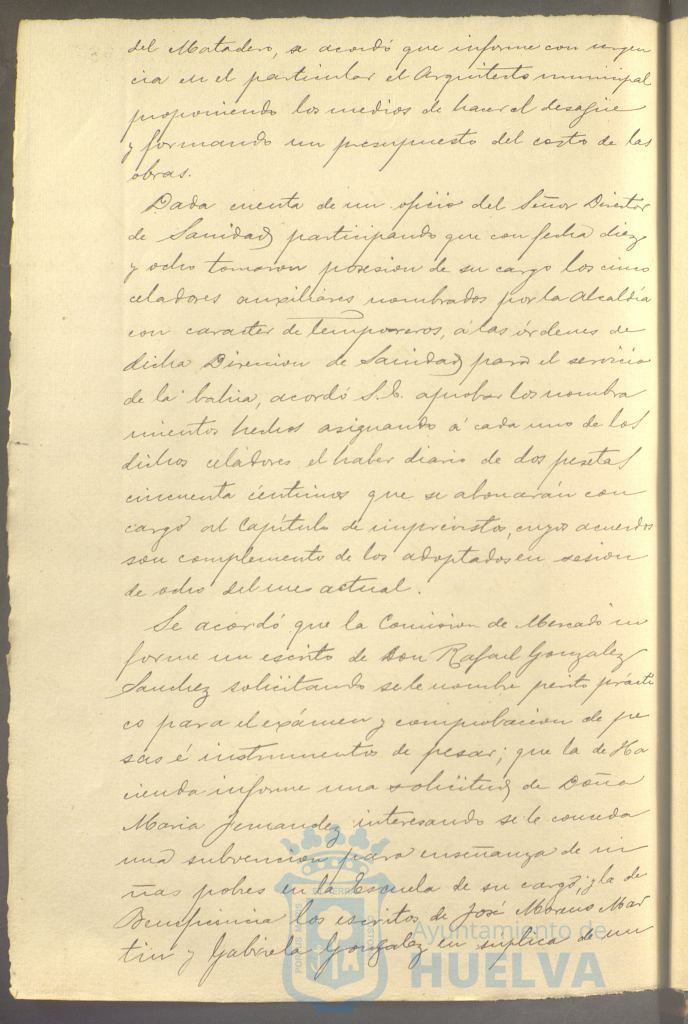 del Matadero, se acordó que informe con urgen
cia en el particular el Arquitecto municipal
proponiendo los medios de hacer el desagüe
y formando un presupuesto del costo de las
obras.
Dada cuenta de un oficio del Señor Director
de Sanidad participando que con fecha diez
y ocho tomaron posesion de su cargo los cinco
celadores auxiliares nombrados por la Alcaldía
con caracter de temporeros, á las órdenes de
dicha Direccion de Sanidad para el servicio
de la bahia, acordó S.E. aprobar los nombra
mientos hechos asignando á cada uno de los
dichos celadores el haber diario de dos pesetas
cincuenta céntimos que se abonarán con
cargo al Capítulo de imprevistos, cuyos acuerdos
son complemento de los adoptados en sesion
de ocho del mes actual.
Se acordó que la Comision de Mercado in
forme un escrito de Don Rafael Gonzalez
Sanchez solicitando se le nombre perito prácti
co para el exámen y comprobacion de pe
sas é instrumentos de pesar; que la de Ha
cienda informe una solicitud de Doña
Maria Fernandez interesando se le conceda
una subvencion para enseñanza de ni
ñas pobres en la Escuela de su cargo, y la de
Beneficencia los escritos de José Moreno Mar
tin y Gabriela Gonzalez en súplica de un
Ayuntamiento de
HUELVA